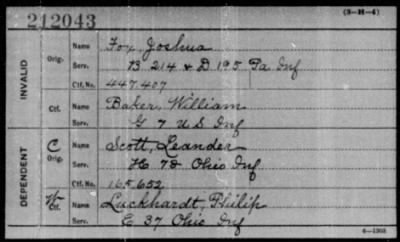 212043
(3-H-4)
INVALID
Orig.
Name Fox, Joshua
Serv. B 214 & D 195 Pa Inf
Ctf. No. 447.407
Ctf.
Name Baker, William
Serv. G 7 U S Inf
DEPENDENT
C
Orig.
Name Scott, Leander
Serv. H 78 Ohio Inf
Ctf. No. 165.652
W
Ctf.
Name Luckhardt, Philip
Serv. E 37 Ohio Inf